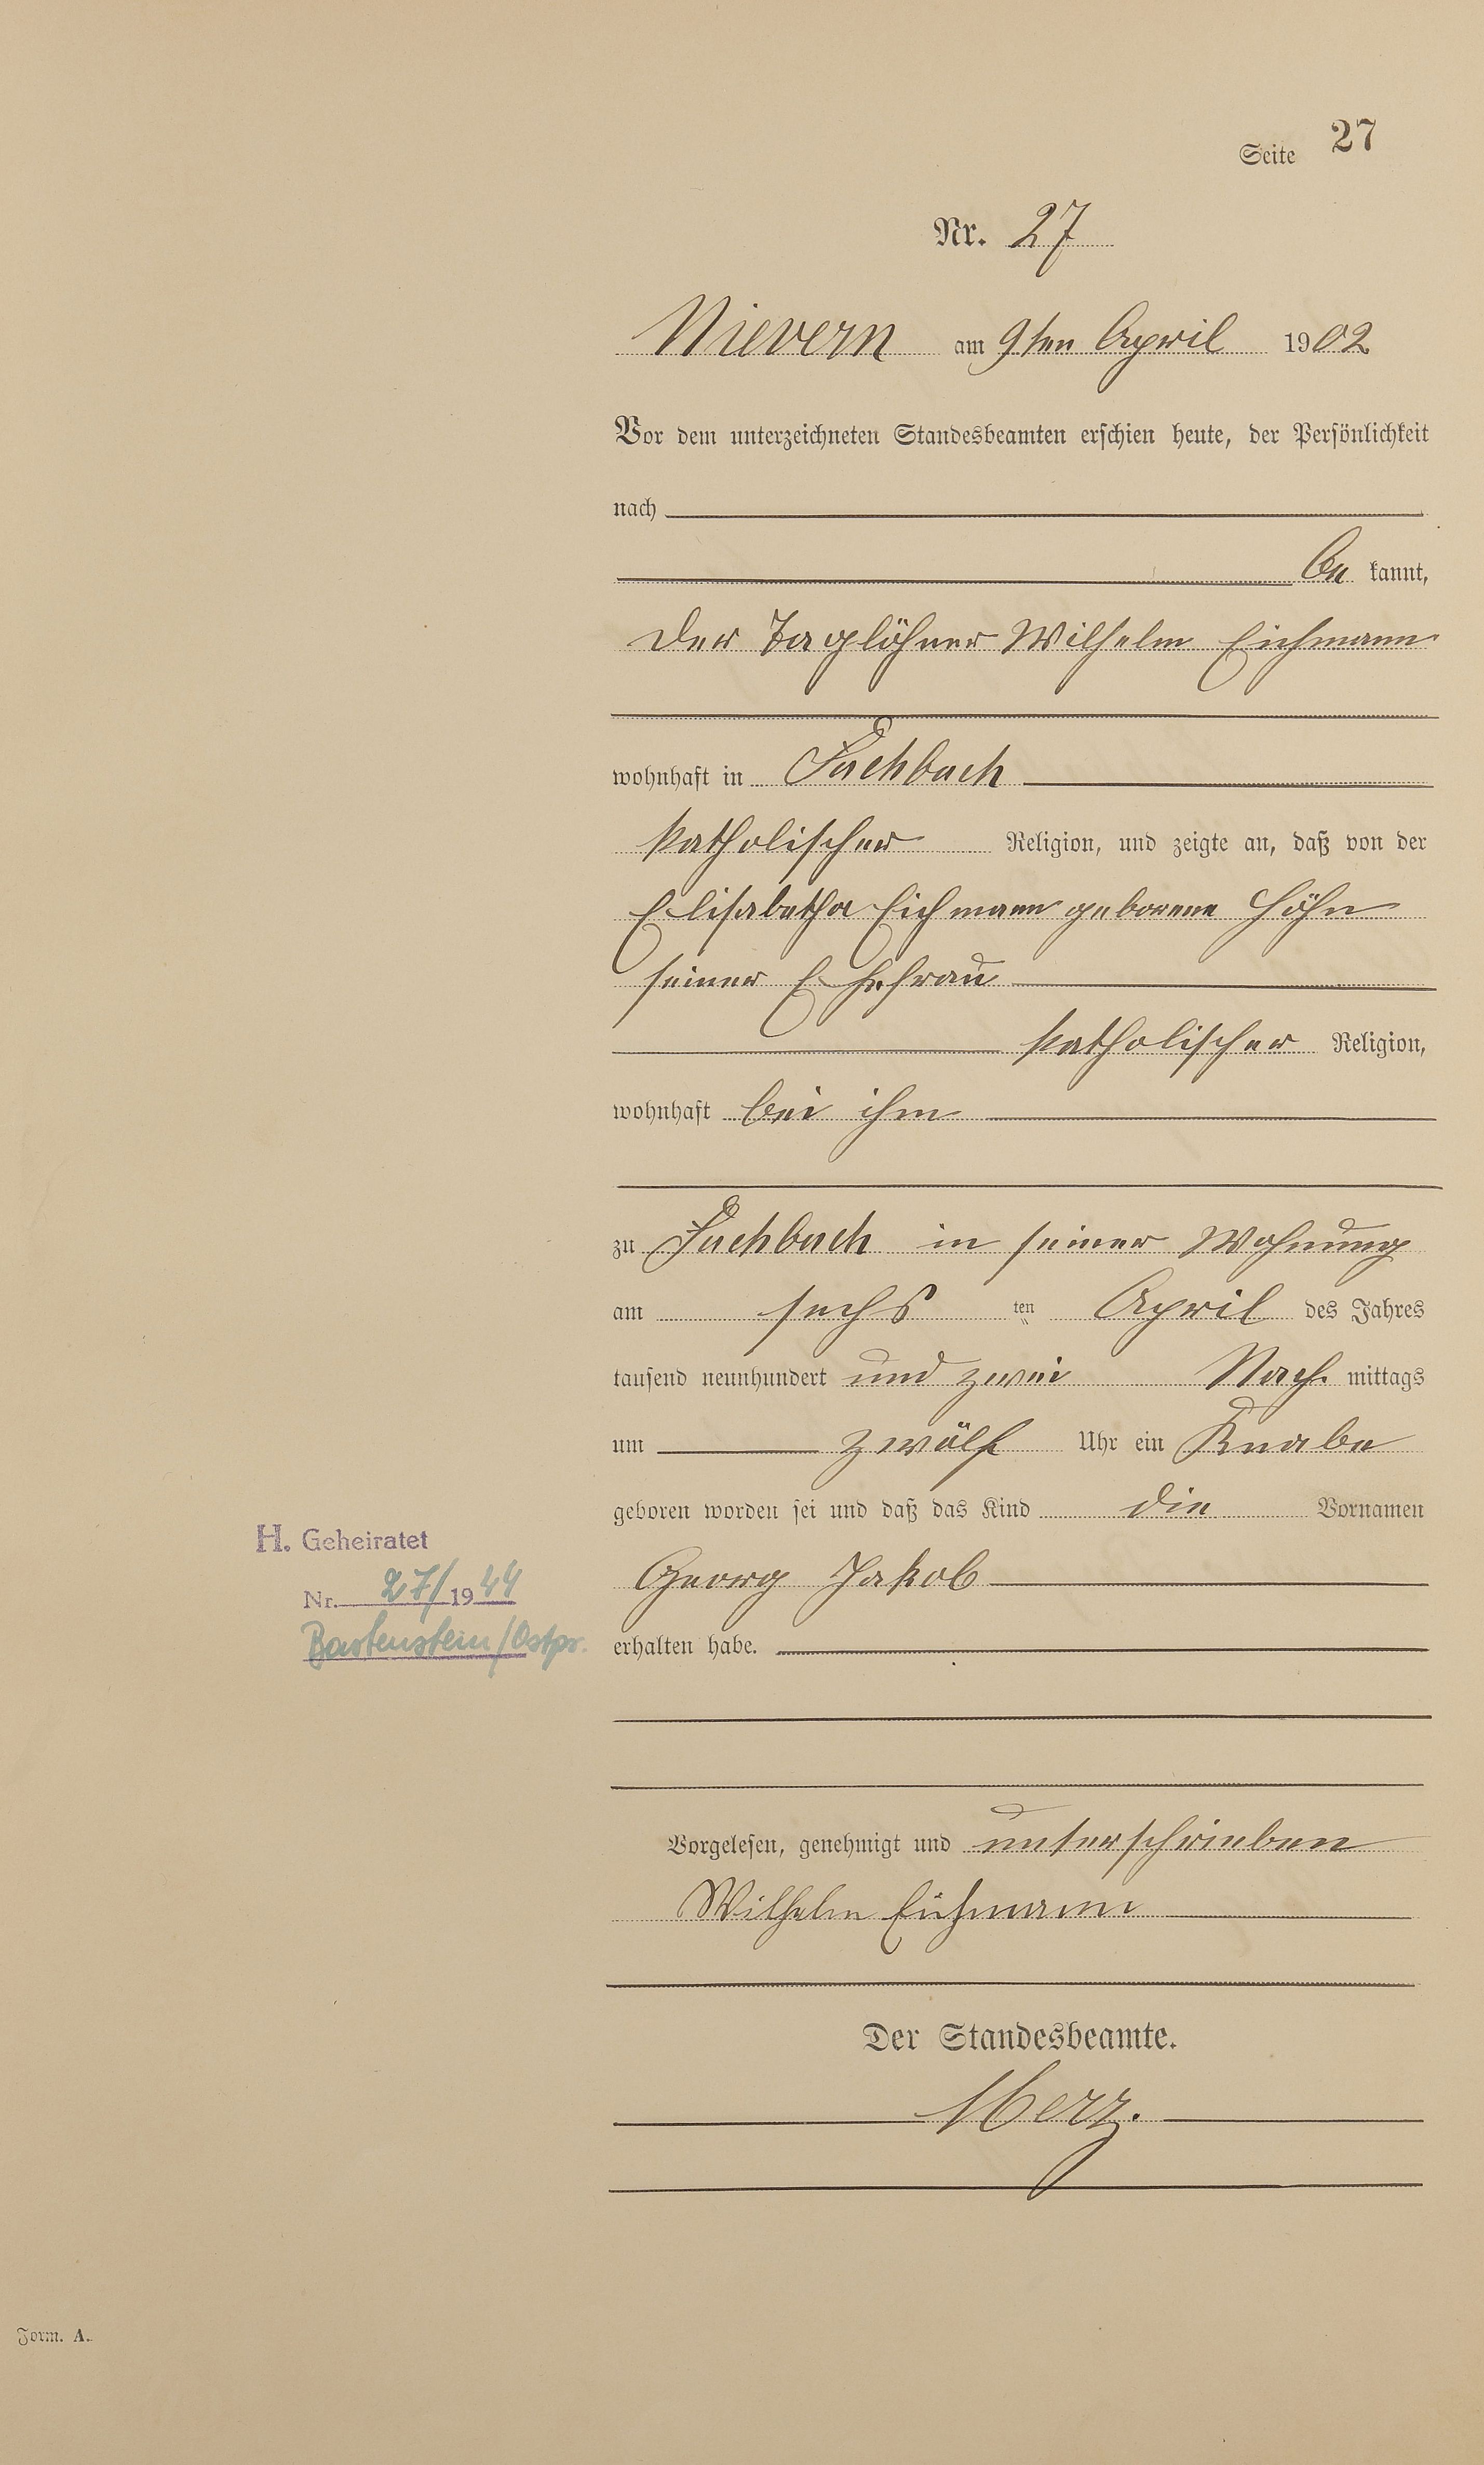 Seite 27
Nr. 27
Nievern am 9ten April 1902
Vor dem unterzeichneten Standesbeamten erschien heute, der Persönlichkeit
nach
be kannt,
der Taglöhner Wilhelm Eichmann
wohnhaft in Fachbach
katholischer Religion, und zeigte an, daß von der
Elisabetha Eichmann geborene Höhn
seiner Ehefrau
katholischer Religion,
wohnhaft bei ihm
zu Fachbach in seiner Wohnung
am sechs ten April des Jahres
tausend neunhundert und zwei Nach mittags
um zwölf Uhr ein Knabe
geboren worden sei und daß das Kind die Vornamen
Georg Jakob
erhalten habe.
H. Geheiratet
Nr. 27/1944
Bartenstein/Ostpr.
Vorgelesen, genehmigt und unterschrieben
Wilhelm Eichmann
Der Standesbeamte.
Merz.
Form. A.